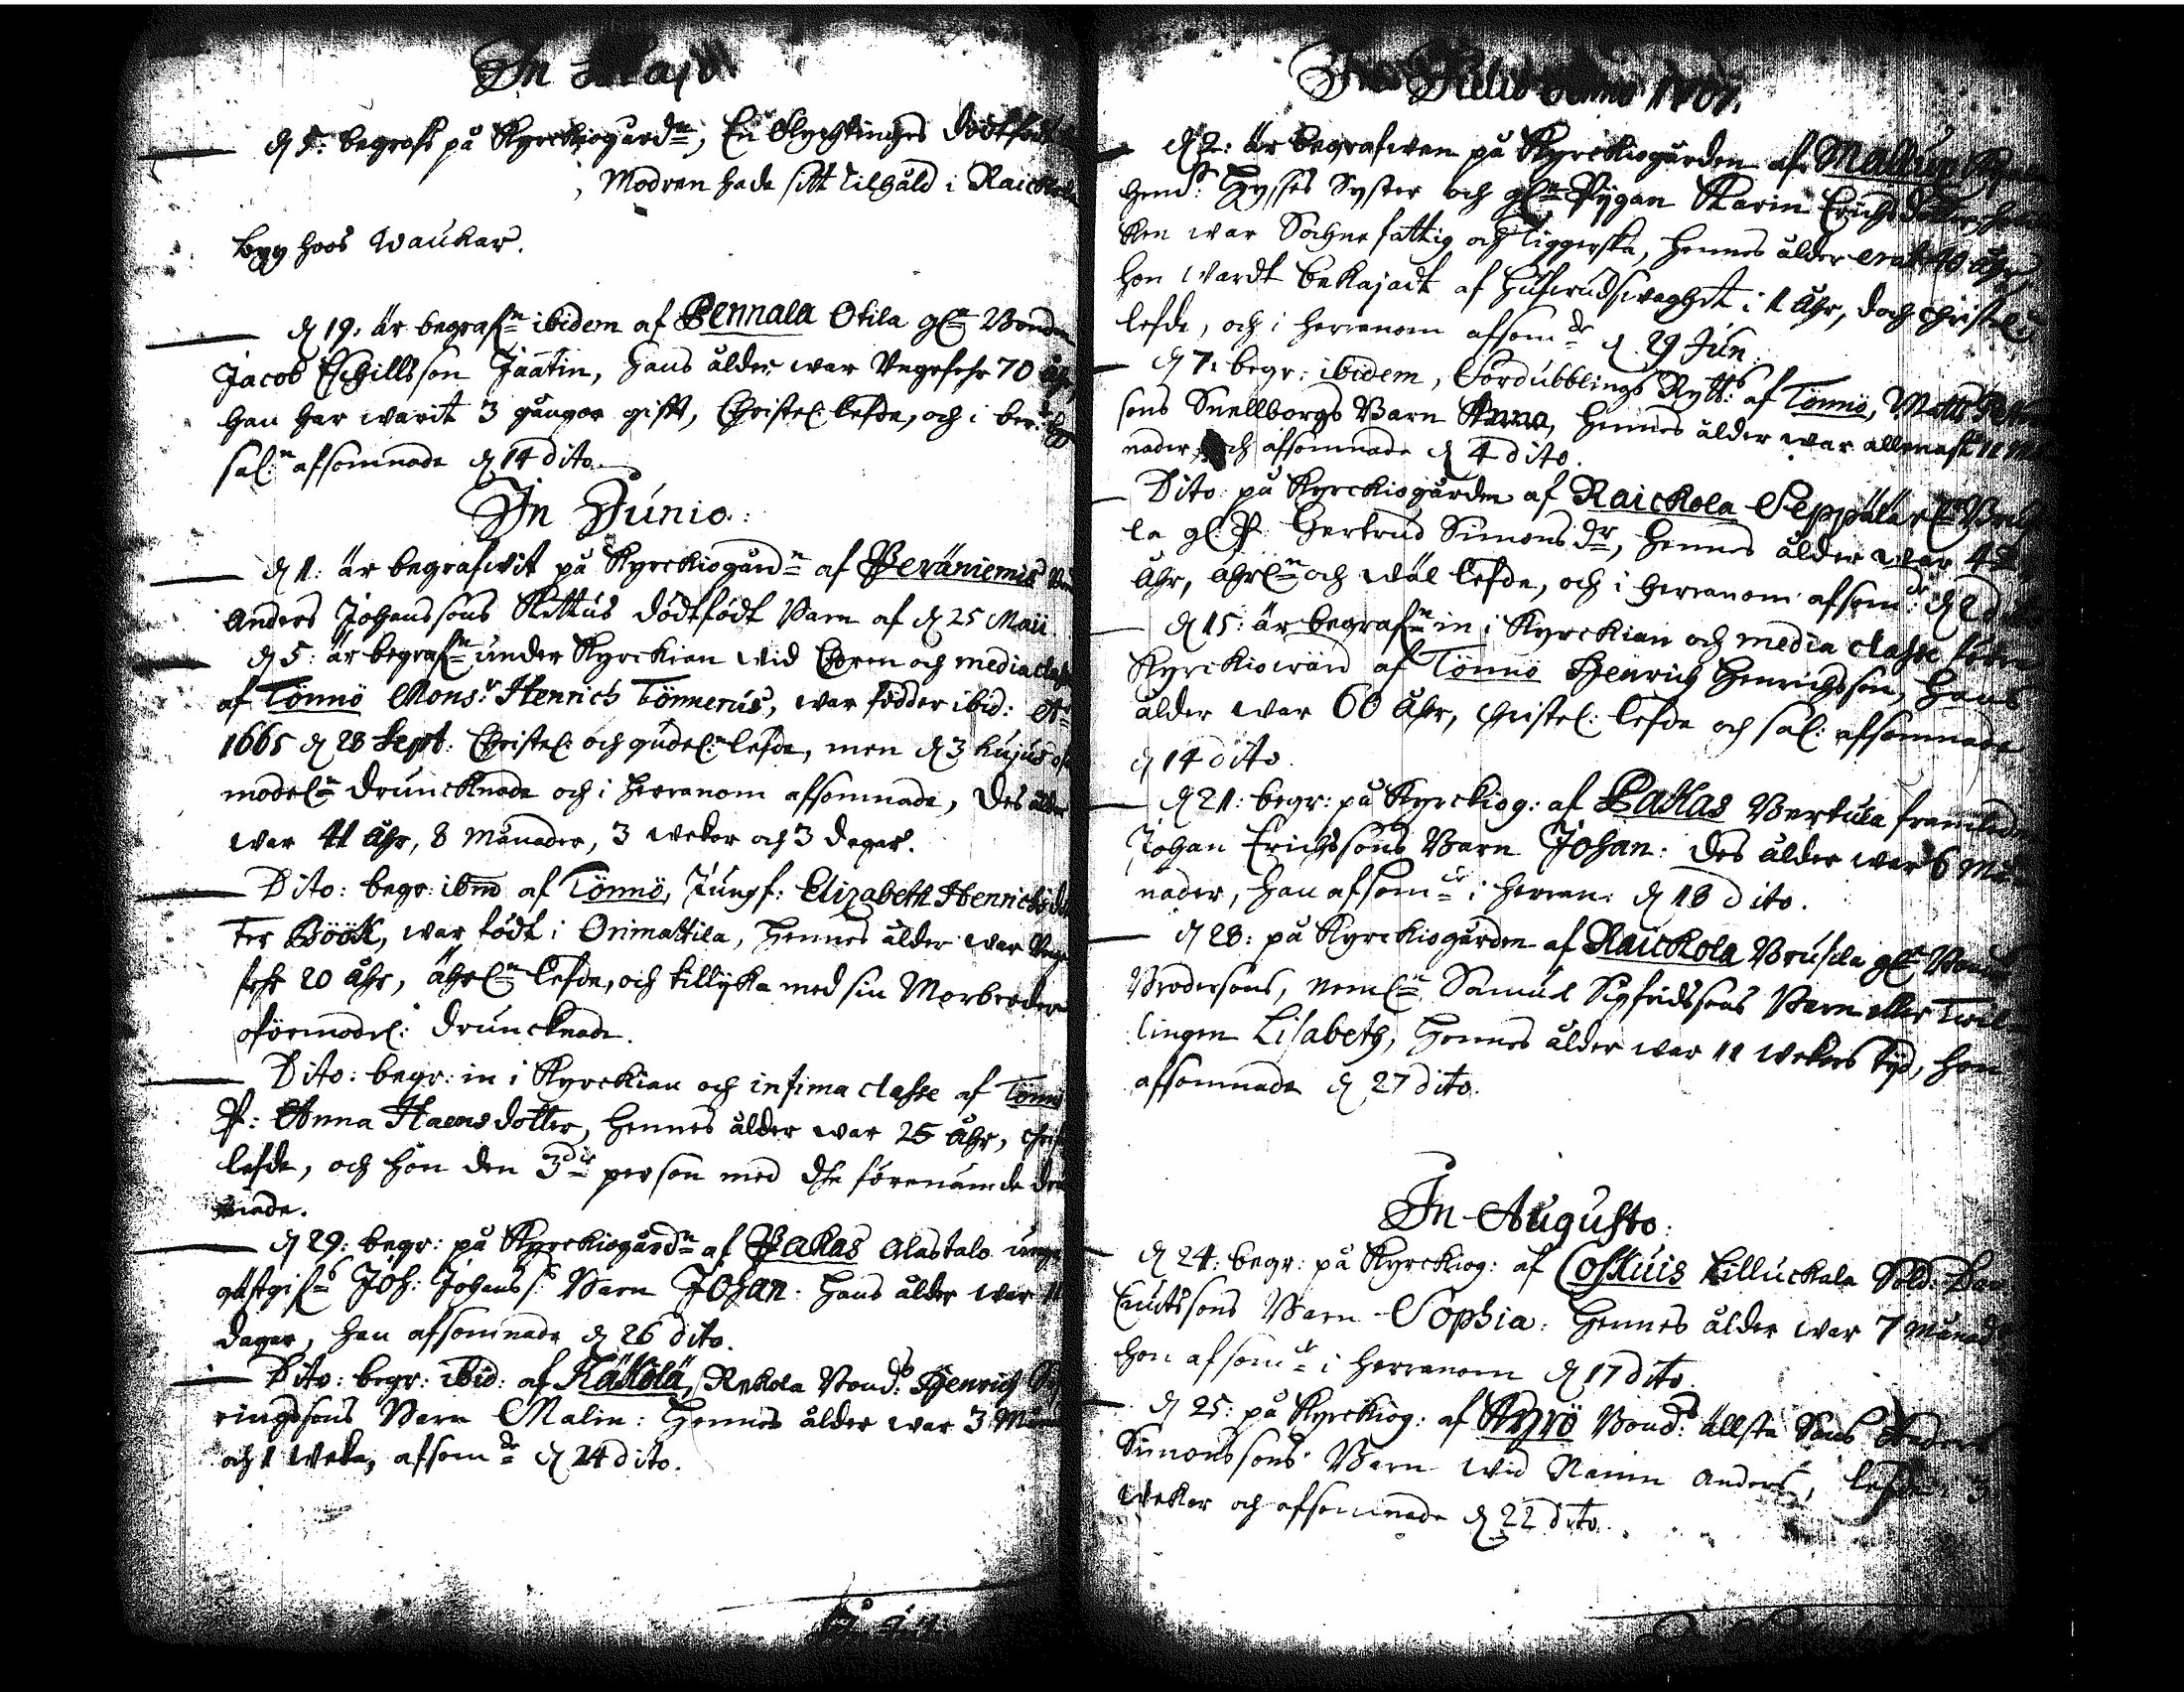 In Majo
d 5: begrofs på Kyrckiogårdn, En Flychtinges dödtföd
, Modren hade sitt tilhåld i Raickola
byy hoos Waukar.
d 19. är begrafn ibidem af Pennala Otila gln Bonden
Jacob Eschillsson Jäätin, hans ålder war Ungefehr 70 åhr,
han har warit 3 gångor gift, Christel: lefde, och i
sal:n afsomnade d 14 dito.
In Junio:
d 1: är begrafwit på Kyrckiogårdn af Peräniemis
Anders Johanssons Kettus dödtfödt Barn af d 25 Maii.
d 5: är begrafn under Kyrckian wid Choren och media classe
af Tönnö Mons:r Henrich Tönnerus, war födder ibid: Ao
1665 d 28 Sept: Christel: och gudel:n lefde, men d 3 hujus
model:n druncknade och i herranom afsomnade, Des ålder
war 41 åhr, 8 Månader, 3 wekor och 3 dagar.
Dito: begr: ibm af Tönnö, Jungf: Elizabeth Henrichsdot
ter Böök, war född i Orimattila, hennes ålder war Unge
fehr 20 åhr, ährln lefde, och tillyka med sin Morbroder
oförmodel: druncknade.
Dito: begr: in i Kyrckian och infima classe af Tönnö
P: Anna Haensdotter, hennes ålder war 25 åhr, Christ
lefde, och hon den 3die person med dhe förenämde
nade.
d 29: begr: på Kyrckiogårdn af Pakas Alastalo unge
Joh: Johanss: Barn Johan: hans ålder war 11
dagar, han afsomnade d 26 dito.
Dito: begr: ibid: af Käkölä, Rekola Bonds: Henrich
ringssons Barn Malin: hennes ålder war 3 Mån
och 1 Weka, afsomde d 24 dito.
Julio Anno 1707.
d 2: är begrafwen på Kyrckiogården af Mallusjo
hend: Hysses Syster och gln Pygan Karin Erichsdotter,
ken war Sochne fattig och tiggerska, hennes ålder
hon wardt bekajadt af hufwudswaghet i 1 åhr, doch Christel:
lefde, och i herranom afsomde d 29 Jun.
d 7: begr: ibidem, Fördubblings Rytt: af Tönnö, Matts
sons Snellborgs Barn Anna, hennes ålder war allenast 11
nader, och afsomnade d 4 dito.
Dito på Kyrckiogården af Raickola Seppälä
la gl: P: Gertrud Simonsdr, hennes ålder war 42
åhr, ährln och wäl lefde, och i herranom afsomde: d 2 dito
d 15: är begrafn in i Kyrckian och media classe
Kyrckiowärd af Tönnö Henrich Henrichsson, hans
ålder war 60 åhr, Christel: lefde och sal: afsomnade
d 14 dito.
d 21: begr: på Kyrckiog: af Pakas Bertula framledne
Johan Erichssons Barn Johan: des ålder war 6 Må
nader, han afsomde i herran: d 18 dito.
d 28: på Kyrckiogården af Raickola Brusila gln
Brodersons, neml:n Samuel Sigfridssons Barn eller Twil
lingen Lisabeth, hennes ålder war 11 wekors tyd, hon
afsomnade d 27 dito.
In Augusto:
d 24: begr: på Kyrckiog: af Coskuis Killuckala Sold:
Cnutssons Barn Sophia: hennes ålder war 7 Månad
hon afsomde i herranom d 17 dito.
d 25: på Kyrckiog: af Kyrö Bonds: ällste Sons
Simonssons Barn wid Namn Anders, lefde 3
wekor och afsomnade d 22 dito.